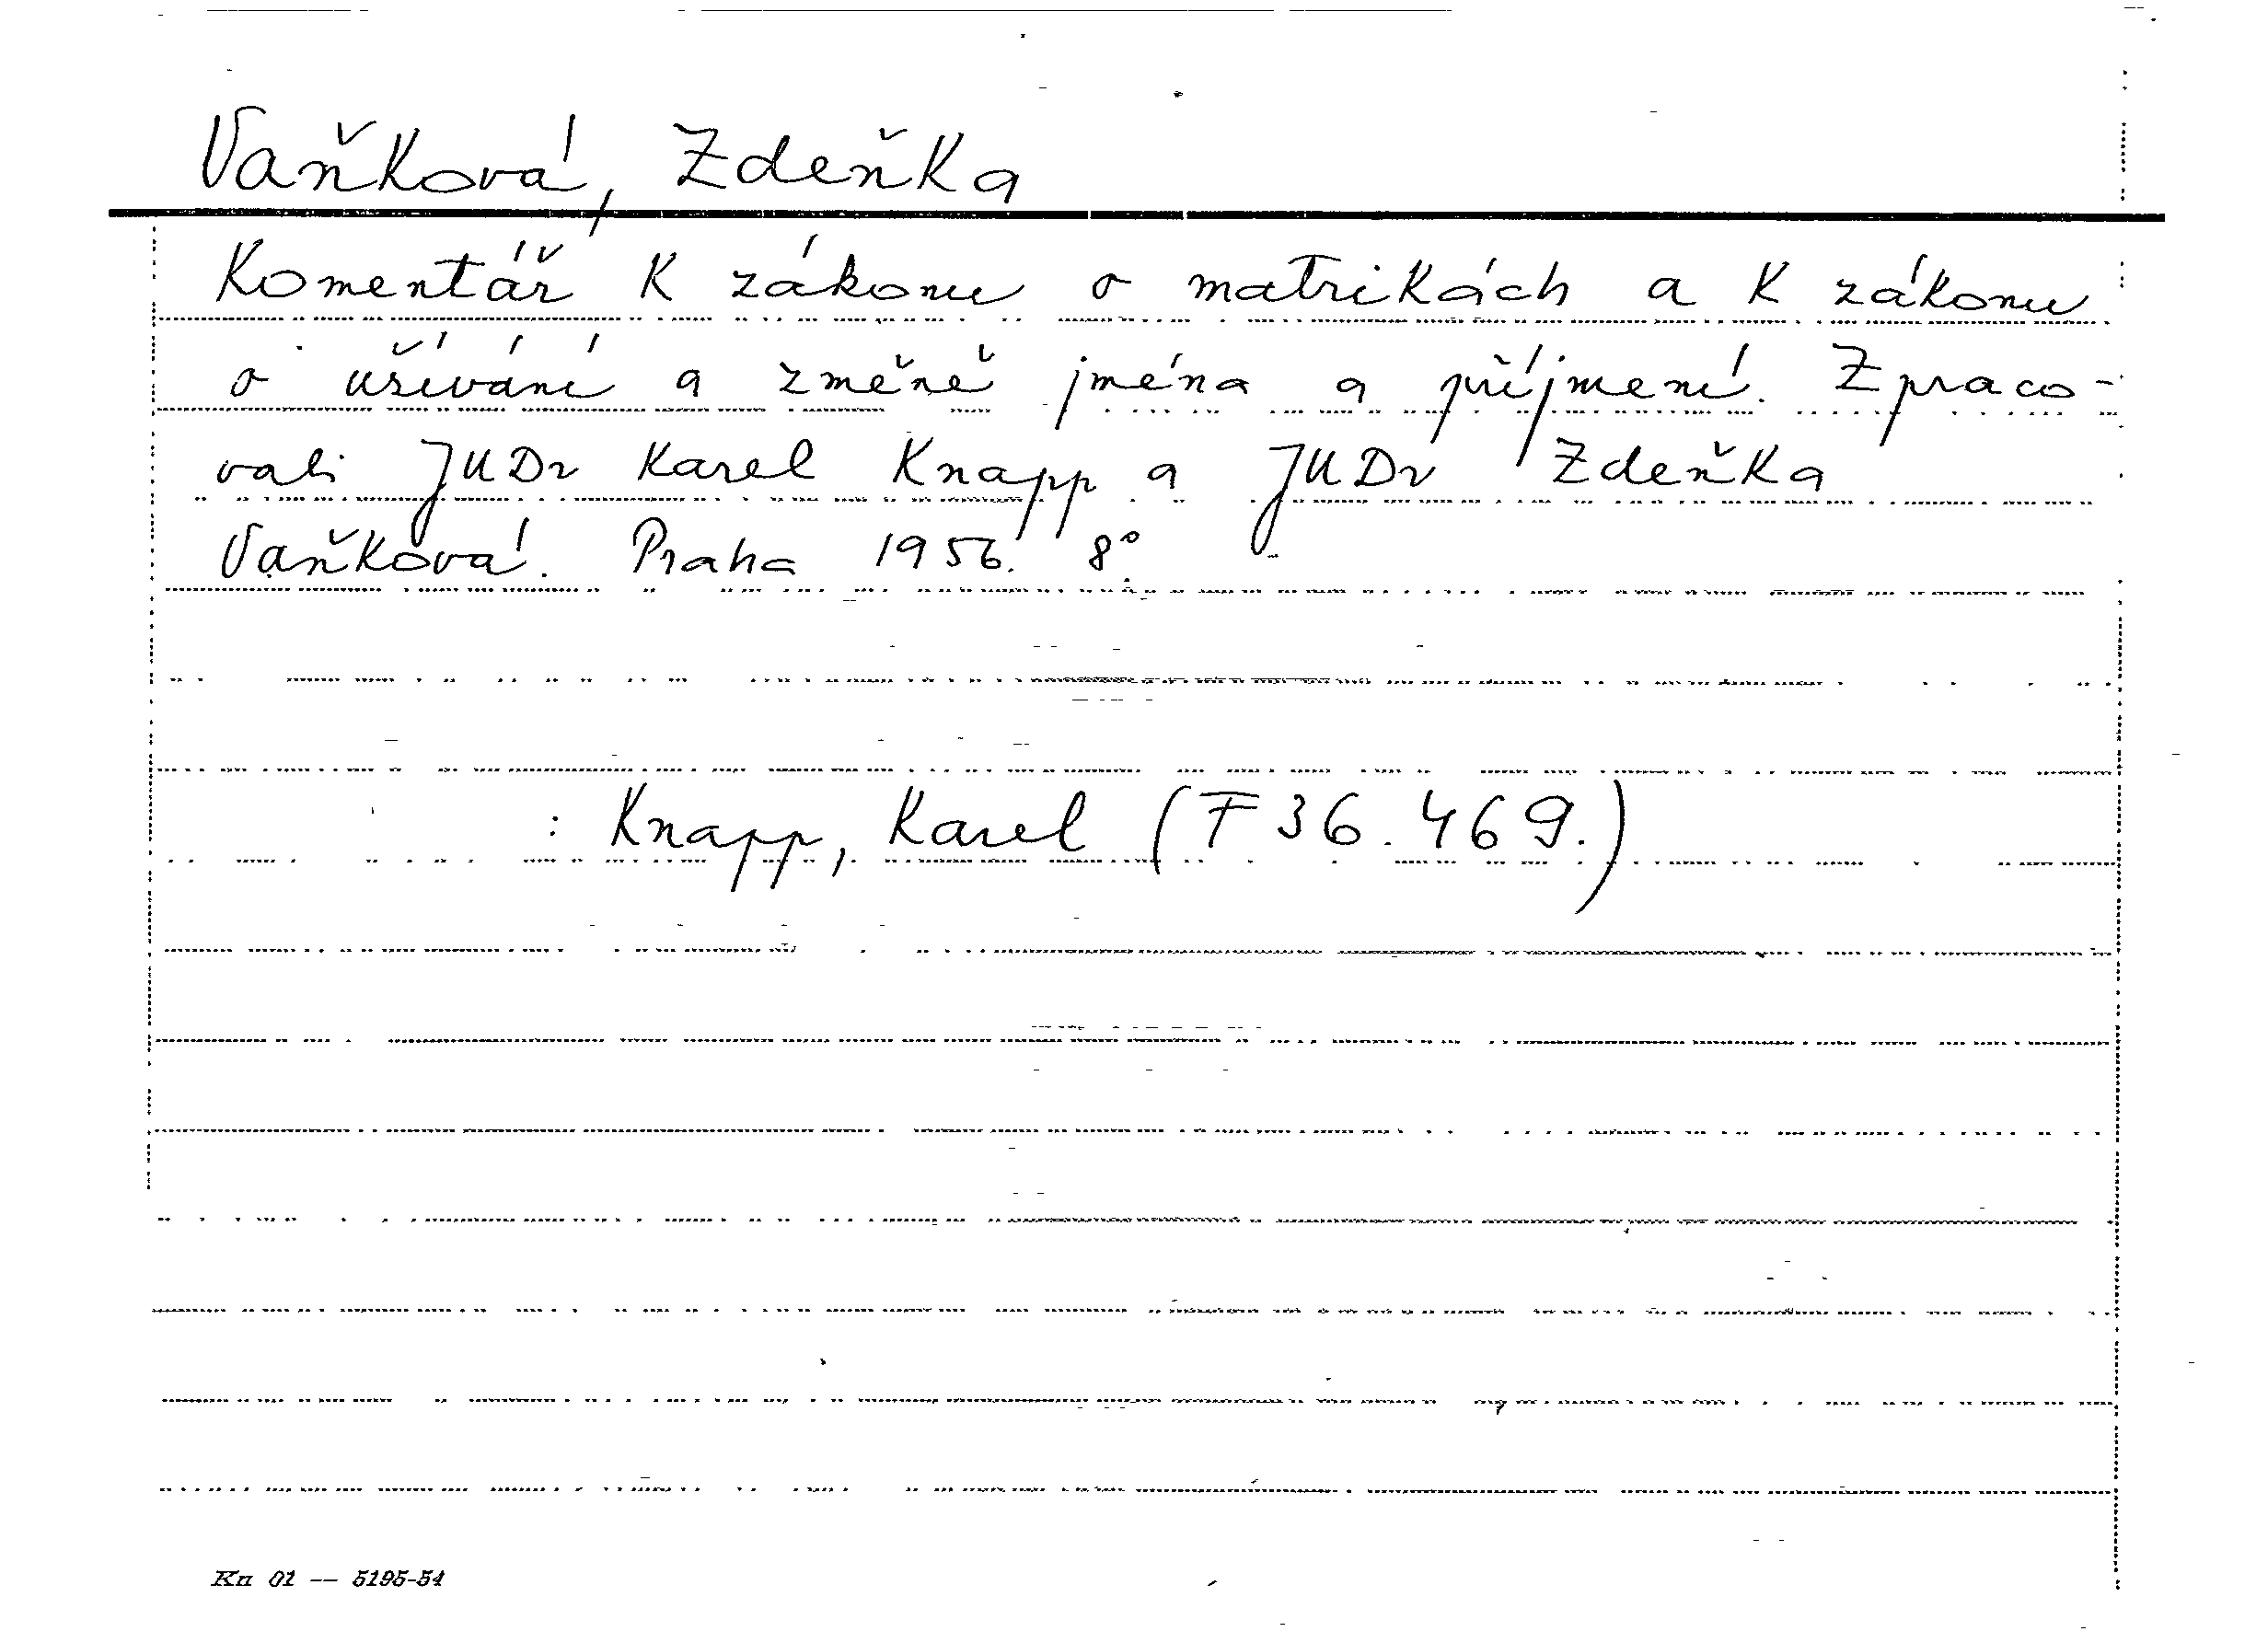 Vaňková, Zdeňka
Komentář k zákonu o matrikách a k zákonu
o užívání a změně jména a příjmení. Zpraco-
vali JUDr Karel Knapp a JUDr Zdeňka
Vaňková. Praha 1956. 8°
: Knapp, Karel (F 36.469.)
Kn 01 — 5195-54